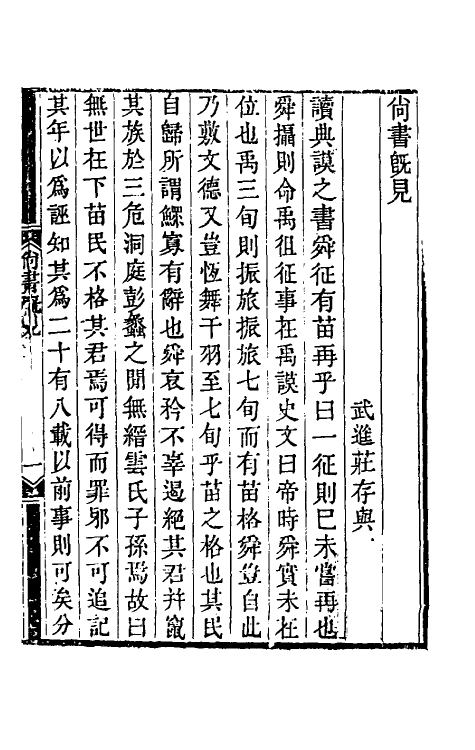 尙書旣見
武進莊存與
讀典謨之書舜征有苗再乎曰一征則巳未嘗再也
舜攝則命禹徂征事在禹謨史文曰帝時舜實未在
位也禹三旬則振旅振旅七旬而有苗格舜豈自此
乃敷文德又豈恆舞干羽至七旬乎苗之格也其民
自歸所謂鰥寡有辭也舜哀矜不辜遏絕其君幷竄
其族於三危洞庭彭蠡之閒無縉雲氏子孫焉故曰
無世在下苗民不格其君焉可得而罪邪不可追記
其年以爲誣知其爲二十有八載以前事則可矣分
尙書旣見
一